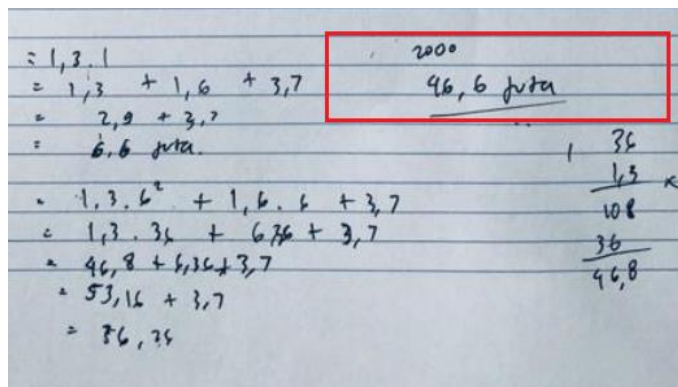 = 1,3 . 1
= 1,3 + 1,6 + 3,7
= 2,9 + 3,7
= 6,6 juta.
= 1,3 . 6² + 1,6 . 6 + 3,7
= 1,3 . 36 + 6,36 + 3,7
= 46,8 + 6,36 + 3,7
= 53,16 + 3,7
= 56,36
2000
46,6 juta
36
1,3 x
108
36
46,8